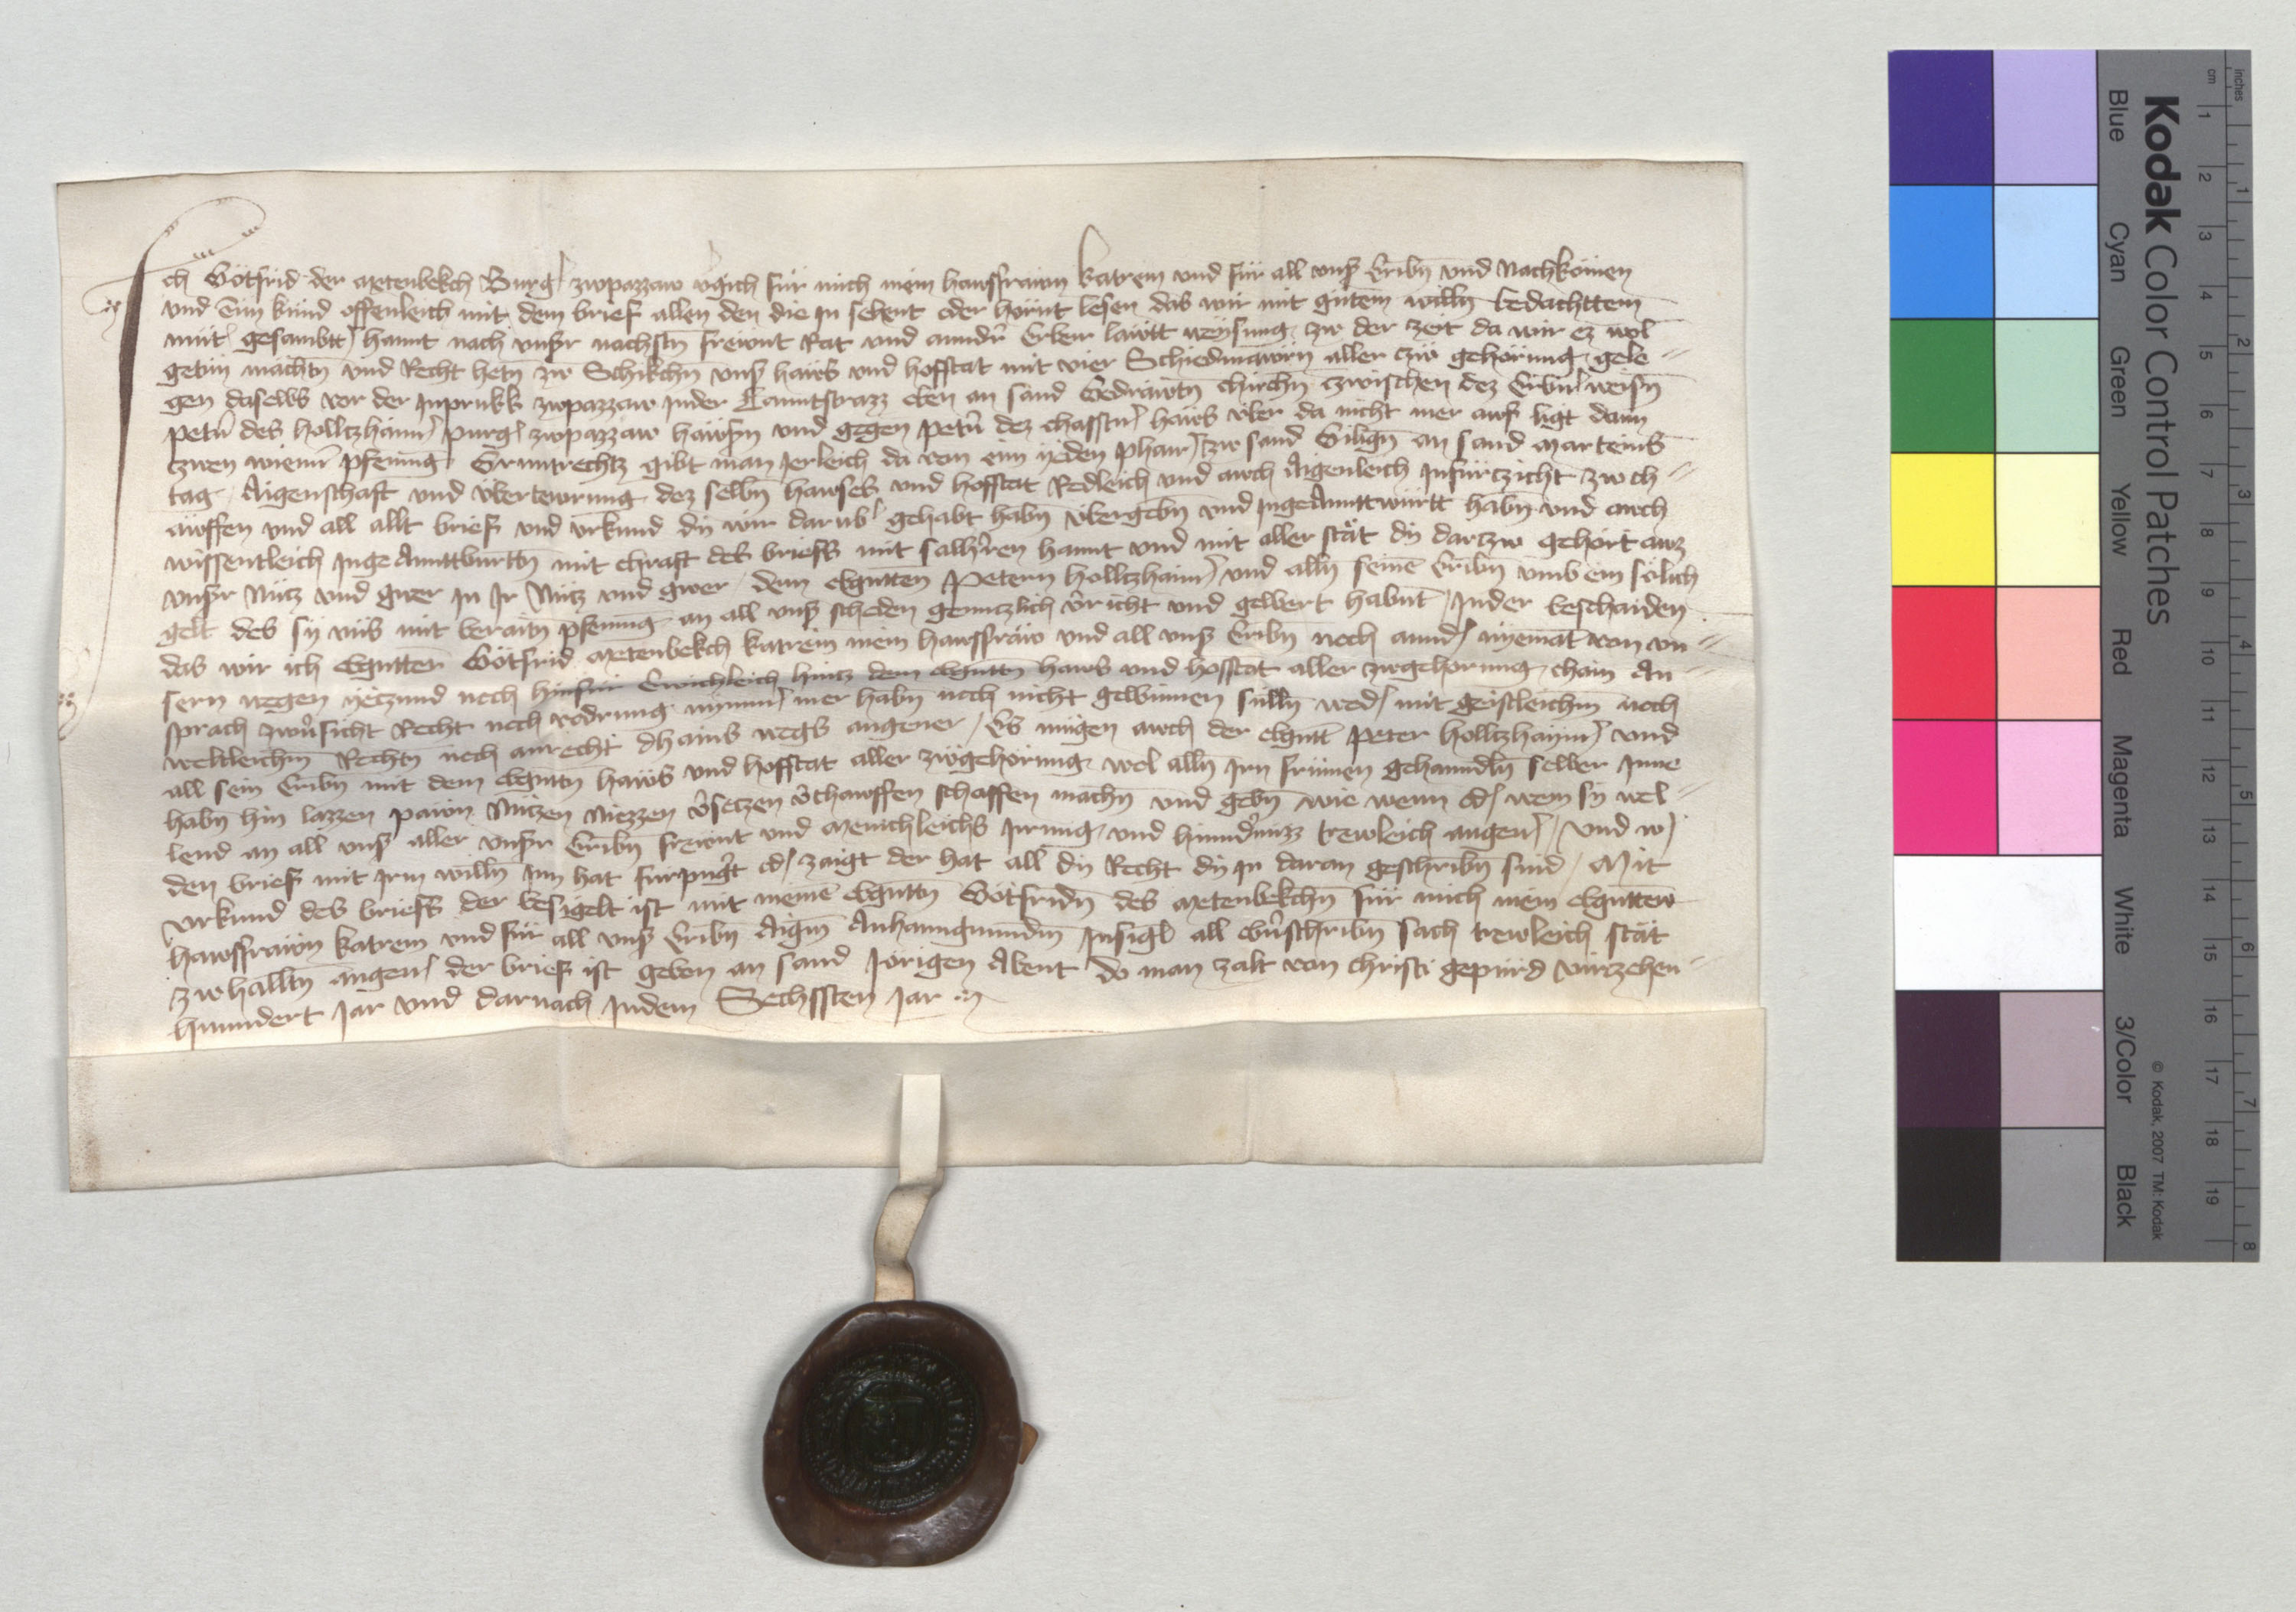 Ich Götfrid der Metenbekch Burg' zwpazzaw v'gich für mich mein hawsfrawn katrein und für all uns' Eribn und Nachkömen
und Tün künd offenleich mit dem brief allen den die in sehent oder hörnt lesen das wir mit gütem willn bedachttem
müt gesambtt' hannt nach unsr nächstn frewnt Rat und anndr Erber lawtt weysung zw der zeit da wir ez wol
getün machtn und Recht hetn zw Schikchn uns' haws und hofstat mit vier Schiedmawrn aller zw gehörung gele-
gen daselbs vor der Inprukk zwpazzaw Inder Lamtstrazz eben an sand Gedrawtn chirchn zwischen dez Erbn' weisn
Petrn des holltzhaim' purg' zwpazzaw hawsrn und gegen Petrn dez chasstn' haws über da nicht mer auf ligt dann
tzwen wienn' pfening Gruntrechtz gibt man Jerleich da von eim yeden Pharr' zw sand Giligen an sand Marteins
tag Aigenschaft und übertewrung dez selbn hawses und hofstat Redleich und auch Aigenleich Infürtzicht zw ch-
awffen und all allt brief und urkund dy wir darüb' gehabt habn übergebn und IngeAnnttwürtt habn und auch
wissentleich Inge Annttburttn mit chraft des briefs mit salhrren hannt und mit aller stät dy dartzw gehört awz
unsr Nütz und gwer In Ir Nütz und gwer dem Egntten Petern holltzhaim' und alln seine Eribn umb ein sölich
gelt des sy uns mit beraitn pfening an all uns' scheden gentzlich v'richt und gewert habnt Inder beschaiden
das wir ich Egntten Götfrid Metenbekch katrein mein hawsfraw und all uns' Eribn noch annd' nyemat von un-
sern wegen yetzund noch hinfür Ewichleich hintz dem Egntn haws und hofstat aller zwgehorung chain An-
sprach zwv'sicht Recht noch vodrung nymm' mer habn noch nicht gewinnen sülln wed' mit geistleichm noch
weltleichm Rechtn noch anrecht dhains wegs angever Es mügen auch der Egntt Peter holltzhaym' und
all sein Eribn mit dem Egntn haws und hofstat aller zwgehörung wol alln Irn frümen gehanndln selber Inne
habn hin lazzen pawn Nützen Niezzen v'setzen v'chawffen schaffen machn und gebn wie wenn od' wem sy wel-
lend an all uns' aller unsr Eribn frewnt und Menichleichs Irrung und hinnd'nüzz trewleich angev' und w'
den brief mit Irm willn Inn hat fürpngt od' zaigt der hat all dy Recht dy In daran geschribn sind Mit
urkund des briefs der besigelt ist mit meine Egnttn Götfridn des Metenbekchn für mich mein Egntten
hawsfrawn katrein und für all uns' Eribn Aigm Anhanngunndm Insigl all v'schribn sach trewleich stät
zwhalltn angev' der brief ist geben an sand Jörigen Abent do man zalt von christi gepurd vierzehen-
hunndert Jar und darnach Indem Sechssten Jar
Kodak Color Control Patches
Blue Cyan Green Yellow Red Magenta White 3/Color Black
© Kodak, 2007 TM: Kodak
cm 1 2 3 4 5 6 7 8 9 10 11 12 13 14 15 16 17 18 19
inches 1 2 3 4 5 6 7 8